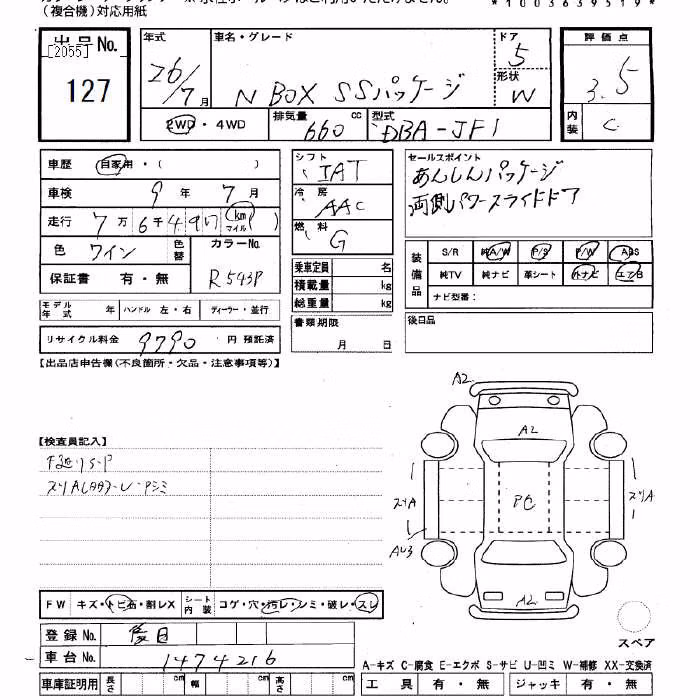 (複合機)対応用紙
*1003639519*
出品No.
[2055]
127
年式 車名・グレード ドア 5
26/7月 N BOX SSパッケージ 形状 W
2WD・4WD 排気量 660 cc 型式 DBA-JF1
評価点
3.5
内装 C
車歴 自家用・( )
車検 9年 7月
走行 7万6千4 9 km マイル ( )
色 ワイン 色替
カラーNo.
R543P
保証書 有・無
シフト IAT
冷房 AAC
燃料 G
乗車定員 名
積載量 kg
総重量 kg
書類期限
月 日
セールスポイント
あんしんパッケージ
両側パワースライドドア
装備品 S/R 純A/W P/S P/W ABS
純TV 純ナビ 革シート 外ナビ エアB
ナビ型番:
後日品
モデル年式 年 ハンドル 左・右 ディーラー・並行
リサイクル料金 9790 円 預託済
【出品店申告欄(不良箇所・欠品・注意事項等)】
【検査員記入】
A2
A2
スリA PC スリA
AU3
A2
FW キズ・トビ石・割レX シート内装 コゲ・穴・汚レ・シミ・破レ・スレ
登録No.
車台No. 1474216
スペア
A-キズ C-腐食 E-エクボ S-サビ U-凹ミ W-補修 XX-交換済
車庫証明用 長さ cm 幅 cm 高さ cm
工具 有・無 ジャッキ 有・無